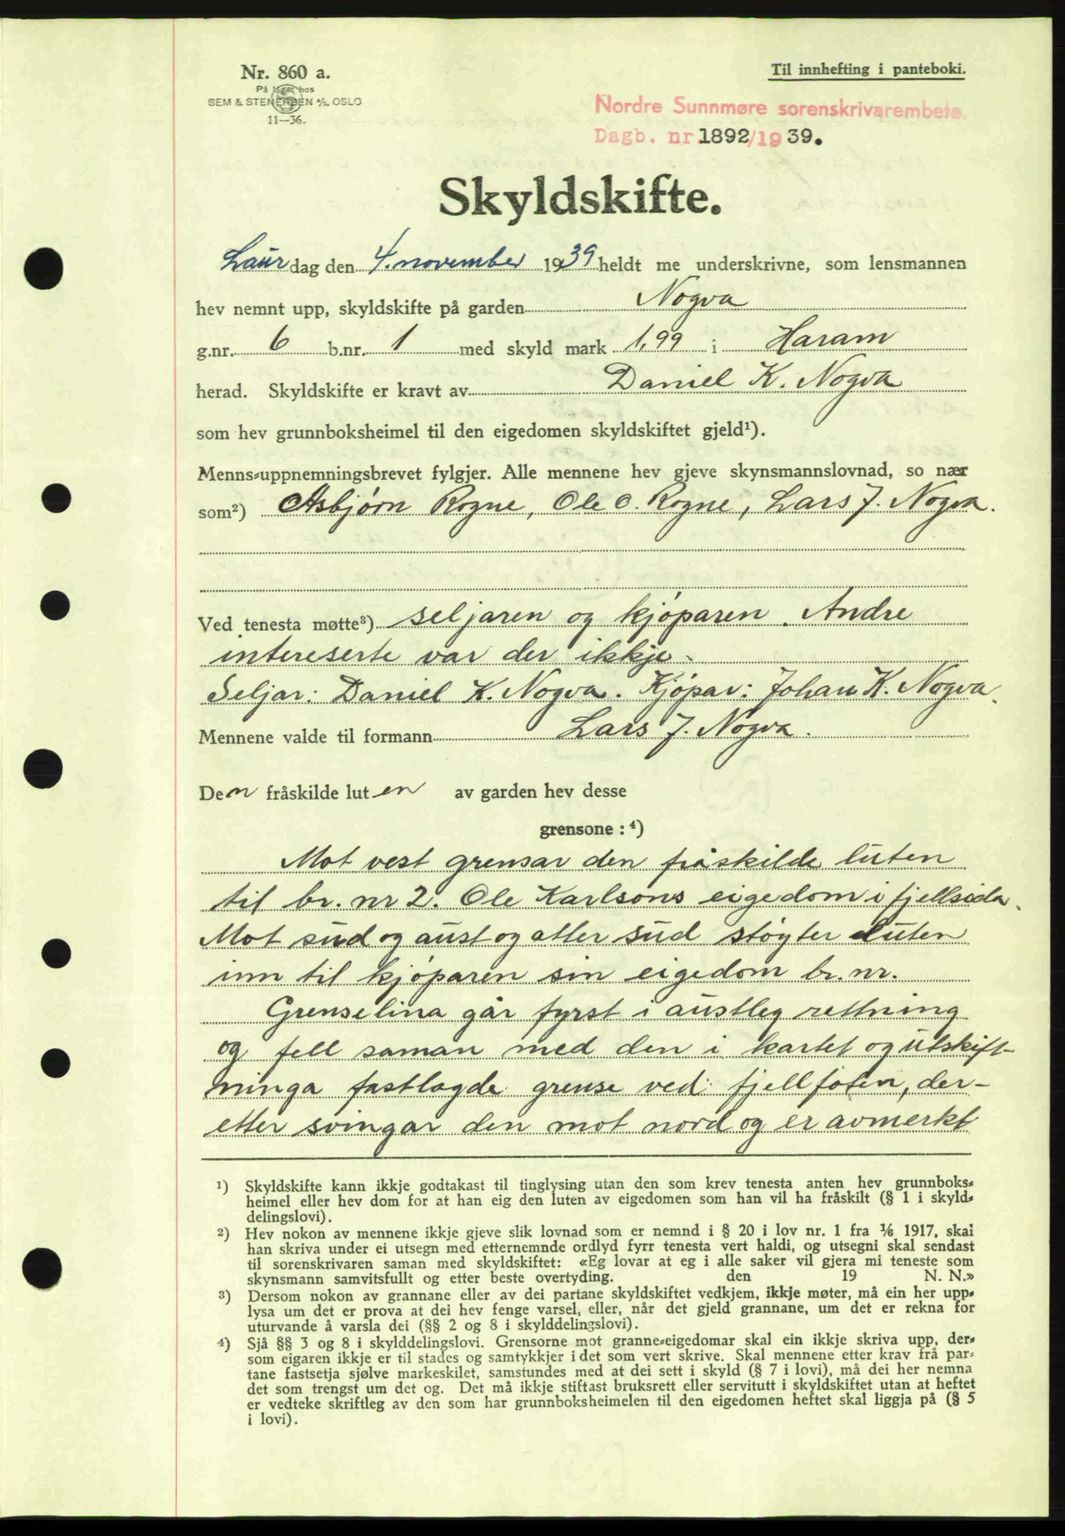 Nr. 860 a.
På lager hos
SEM & STENERSEN A/S, OSLO
11—36.
Til innhefting i panteboki.
Nordre Sunnmøre sorenskrivarembete.
Dagb. nr. 1892/1939.
Skyldskifte.
Laurdag den 4. november 1939 heldt me underskrivne, som lensmannen
hev nemnt upp, skyldskifte på garden Nogva
g.nr. 6 b.nr. 1 med skyld mark 1,99 i Haram
herad. Skyldskifte er kravt av Daniel K. Nogva
som hev grunnboksheimel til den eigedomen skyldskiftet gjeld¹).
Menns-uppnemningsbrevet fylgjer. Alle mennene hev gjeve skynsmannslovnad, so nær
som²) Asbjørn Rogne, Ole O. Rogne, Lars J. Nogva.
Ved tenesta møtte³) seljaren og kjøparen. Andre
intereserte var der ikkje.
Seljar: Daniel K. Nogva. Kjøpar: Johan K. Nogva.
Mennene valde til formann Lars J. Nogva.
Den fråskilde luten av garden hev desse
grensone:⁴)
Mot vest grensar den fråskilde luten
til br. nr 2. Ole Karlsons eigedom i fjellsida.
Mot sud og aust og atter sud støyter luten
inn til kjøparen sin eigedom br. nr.
Grenselina går fyrst i austleg rettning
og fell saman med den i kartet og utskift-
ninga fastlagde grense ved fjellfoten, der-
etter svingar den mot nord og er avmerkt
¹) Skyldskifte kann ikkje godtakast til tinglysing utan den som krev tenesta anten hev grunnboks-
heimel eller hev dom for at han eig den luten av eigedomen som han vil ha fråskilt (§ 1 i skyld-
delingslovi).
²) Hev nokon av mennene ikkje gjeve slik lovnad som er nemnd i § 20 i lov nr. 1 fra 1/6 1917, skal
han skriva under ei utsegn med etternemnde ordlyd fyrr tenesta vert haldi, og utsegni skal sendast
til sorenskrivaren saman med skyldskiftet: «Eg lovar at eg i alle saker vil gjera mi teneste som
skynsmann samvitsfullt og etter beste overtyding. den 19 N. N.»
³) Dersom nokon av grannane eller av dei partane skyldskiftet vedkjem, ikkje møter, må ein her upp-
lysa um det er prova at dei hev fenge varsel, eller, når det gjeld grannane, um det er rekna for
uturvande å varsla dei (§§ 2 og 8 i skylddelingslovi).
⁴) Sjå §§ 3 og 8 i skylddelingslovi. Grensorne mot granne-eigedomar skal ein ikkje skriva upp, der-
som eigaren ikkje er til stades og samtykkjer i det som vert skrive. Skal mennene etter krav frå par-
tane fastsetja sjølve markeskilet, samstundes med at dei sett i skyld (§ 7 i lovi), må dei her nemna
det som trengst um det og. Det må ikkje stiftast bruksrett eller servitutt i skyldskiftet utan at heftet
er vedteke skriftleg av den som har grunnboksheimelen til den eigedomen heftet skal liggja på (§ 5
i lovi).